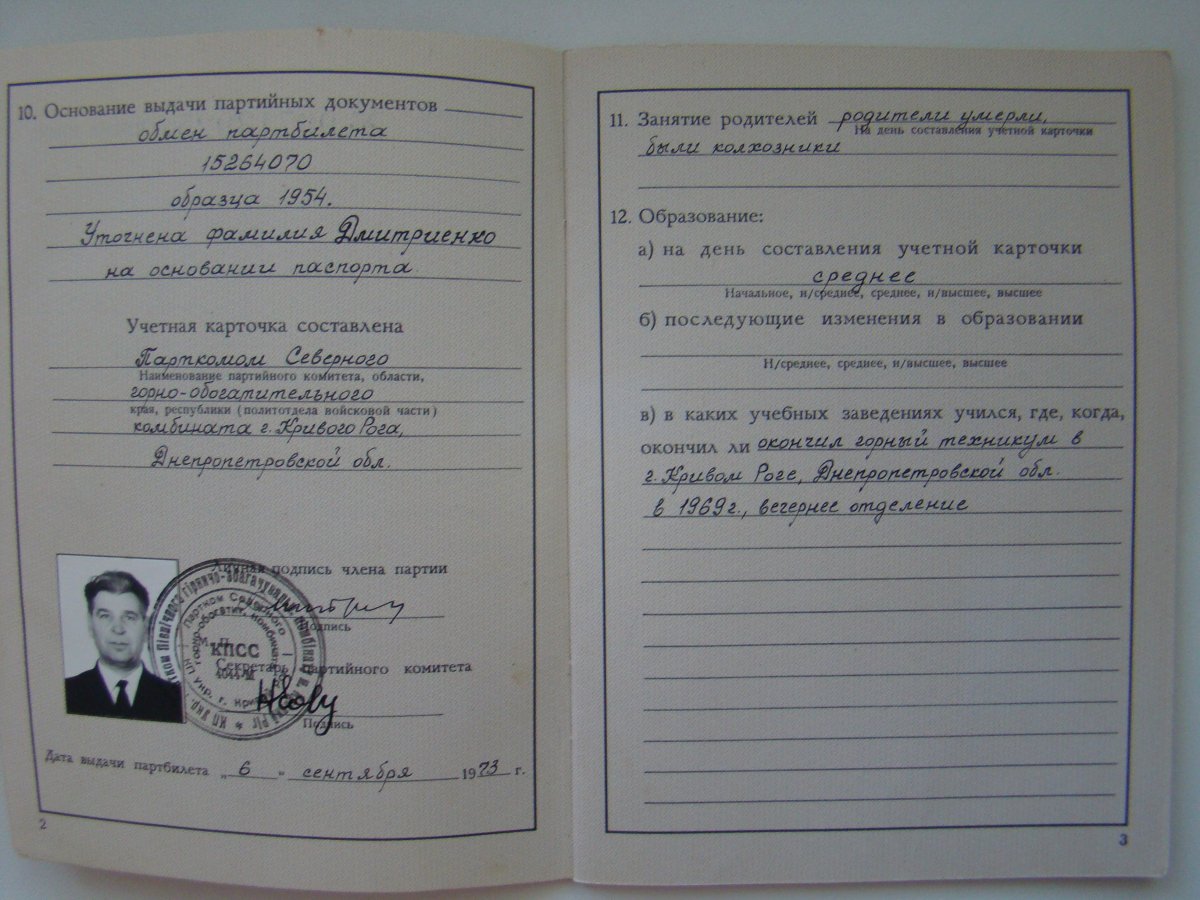 10. Основание выдачи партийных документов
обмен партбилета
15264070
образца 1954.
Уточнена фамилия Дмитриенко
на основании паспорта.
Учетная карточка составлена
Парткомом Северного
Наименование партийного комитета, области,
горно-обогатительного
края, республики (политотдела войсковой части)
комбината г. Кривого Рога,
Днепропетровской обл.
Личная подпись члена партии
Подпись
М. П.
КПСС
Секретарь партийного комитета
Подпись
Дата выдачи партбилета „6" сентября 1973 г.
2
11. Занятие родителей родители умерли,
На день составления учетной карточки
были колхозники
12. Образование:
а) на день составления учетной карточки
среднее
Начальное, н/среднее, среднее, н/высшее, высшее
б) последующие изменения в образовании
Н/среднее, среднее, н/высшее, высшее
в) в каких учебных заведениях учился, где, когда,
окончил ли окончил горный техникум в
г. Кривом Роге, Днепропетровской обл.
в 1969 г., вечернее отделение
3